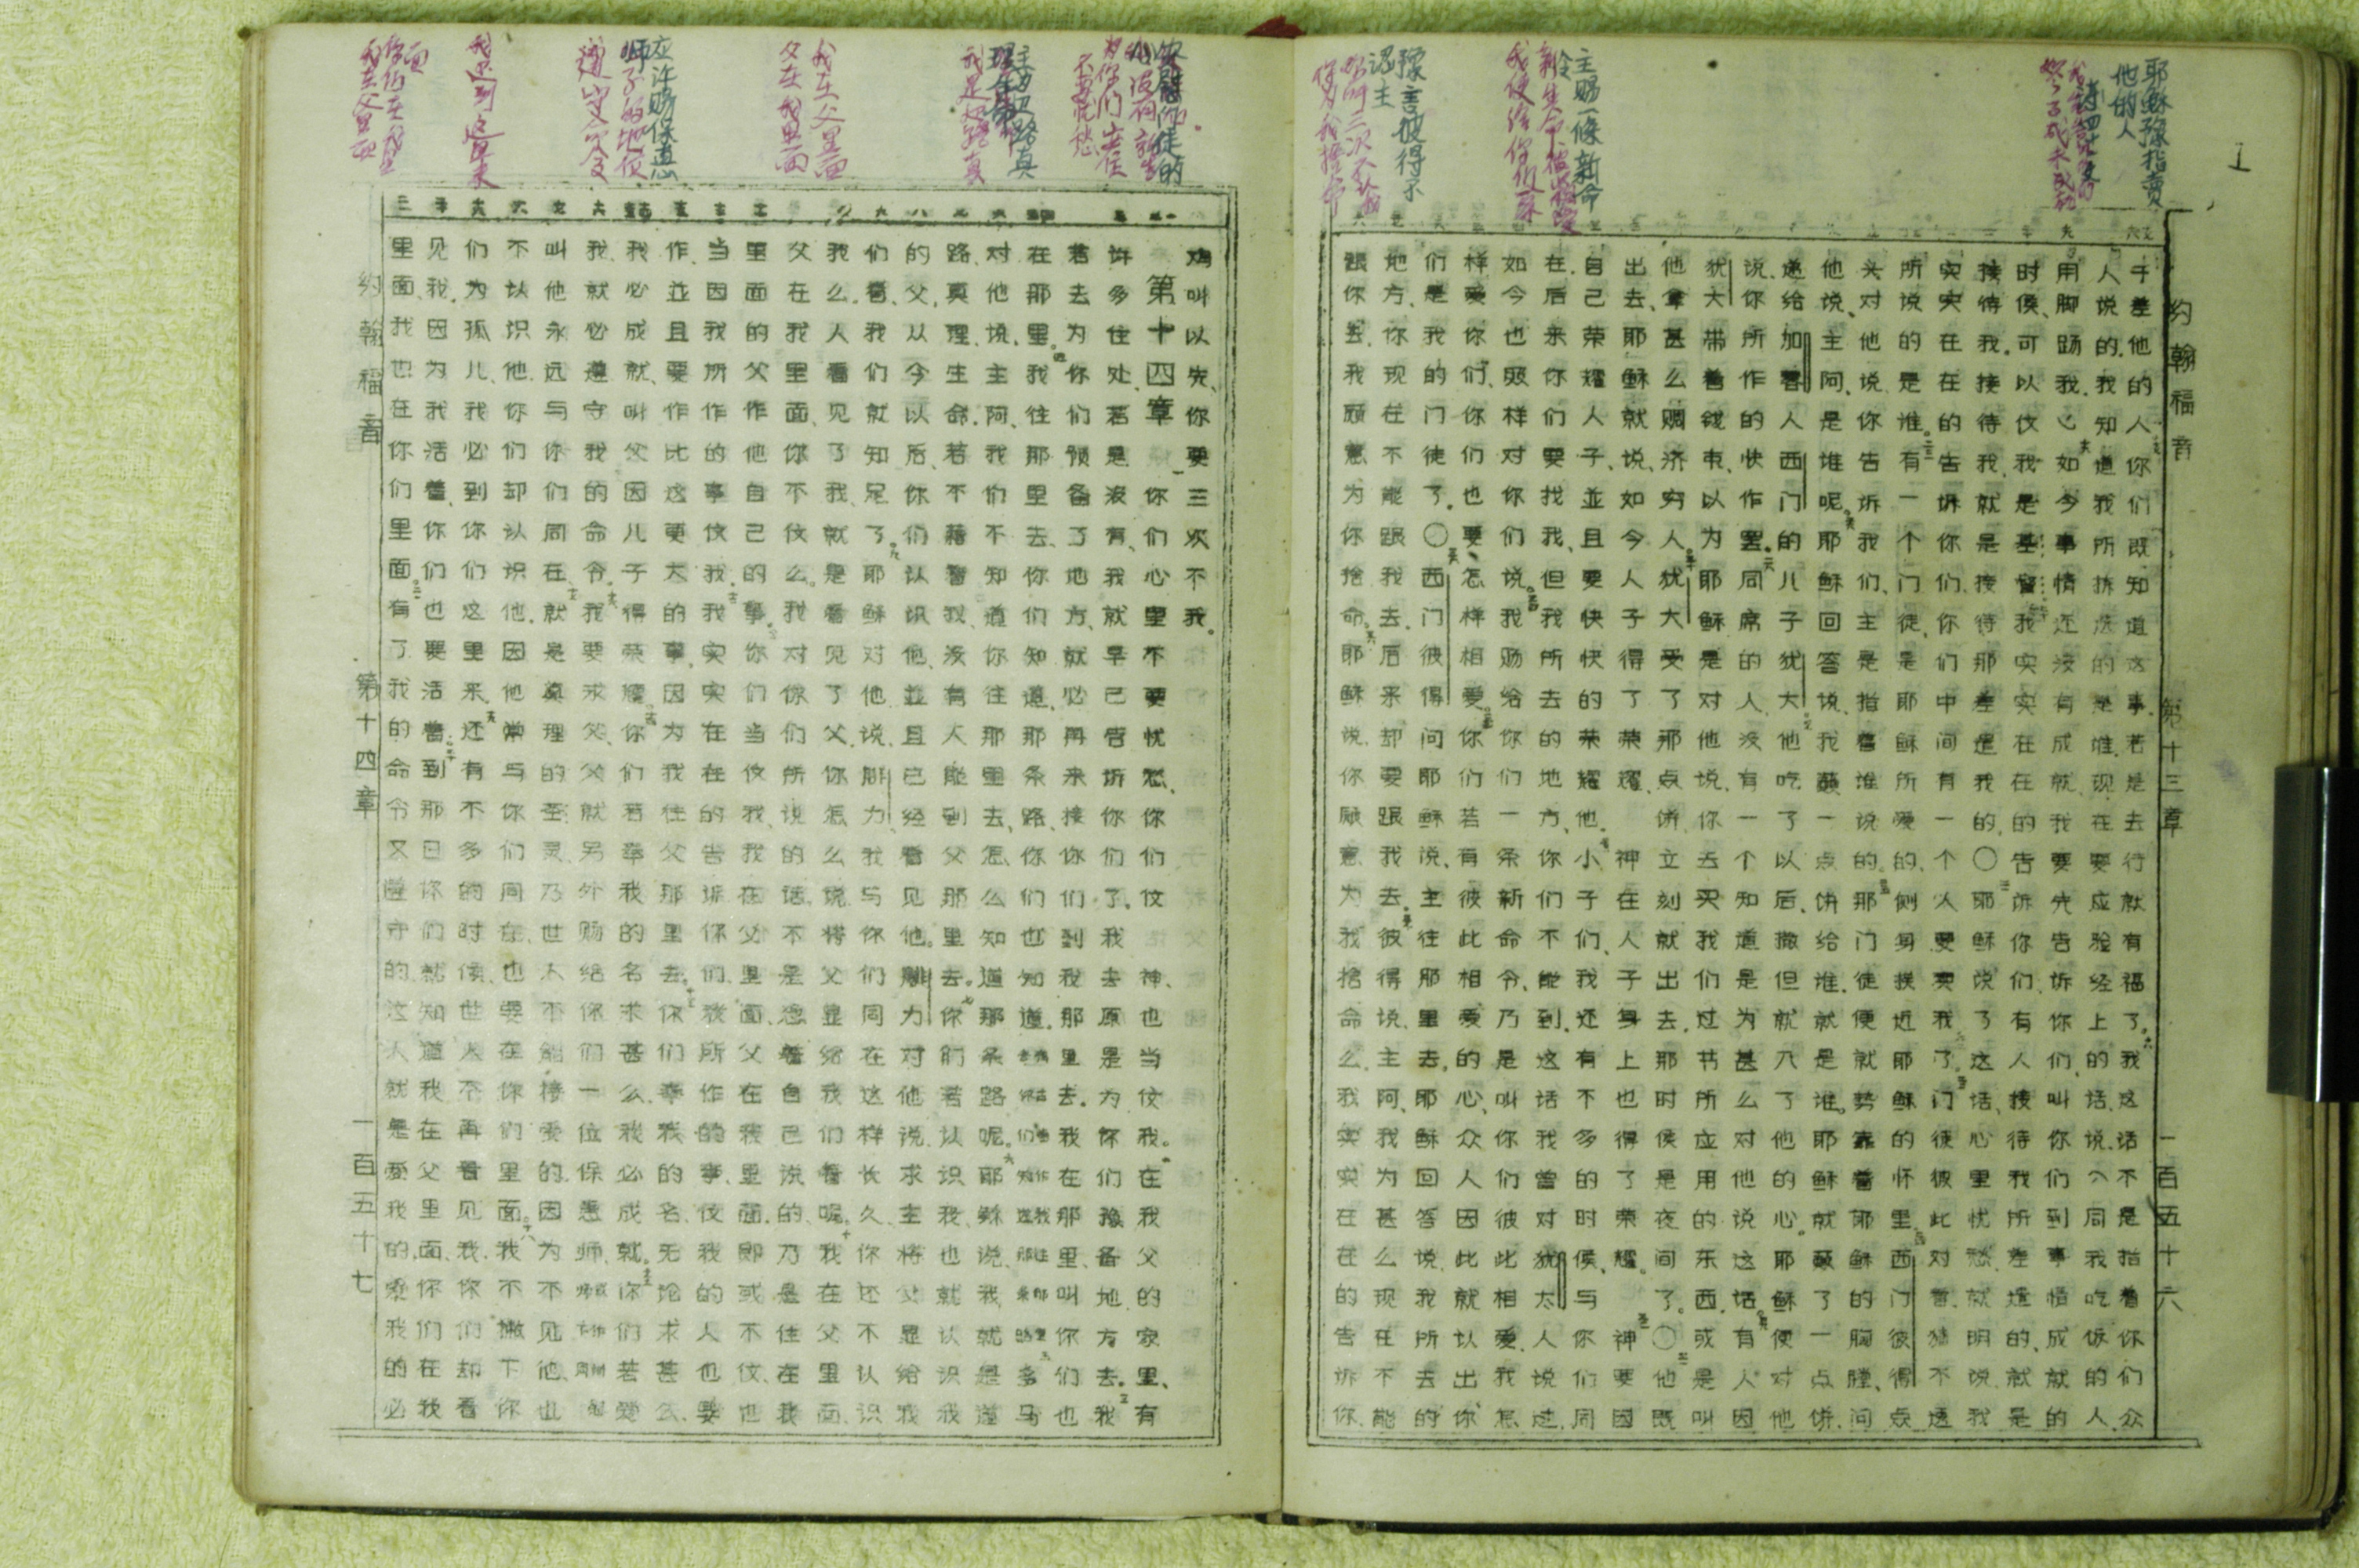 耶稣豫指卖
他的人
约翰福音 第十三章 一百五十六
于差他的人你们既知道这事、若是去行就有福了。我这话不是指着你们众
人说的、我知道我所拣选的是谁、现在要应验经上的话、说、同我吃饭的人、
用脚踢我、心如今事情还没有成就、我要先告诉你们、叫你们到事情成就的
时候、可以仗我是基督、我实实在在的告诉你们、有人接待我所差遣的、就是
接待我、接待我、就是接待那差遣我的、〇耶稣说了这话、心里忧愁、就明说、我
实实在在的告诉你们、你们中间有一个人要卖我了。门徒彼此对看、猜不透
所说的是谁。有一个门徒、是耶稣所爱的、侧身挨近耶稣的怀里西门彼得点
头对他说、你告诉我们、主是指着谁说的、那门徒便就势靠着耶稣的胸膛、问
他说、主阿、是谁呢。耶稣回答说、我蘸一点饼给谁、就是谁。耶稣就蘸了一点饼、
递给加略人西门的儿子犹大他吃了以后、撒但就入了他的心。耶稣便对他
说、你所作的快作罢。同席的人、没有一个知道是为甚么对他说这话。有人因
犹大带着钱囊、以为耶稣是对他说、你去买我们过节所应用的东西、或是叫
他拿甚么赒济穷人犹大受了那点饼立刻就出去、那时候是夜间了。〇他既
出去、耶稣就说、如今人子得了荣耀、 神在人子身上也得了荣耀。 神要因
自己荣耀人子、並且要快快的荣耀他。小子们、我还有不多的时候、与你们同
在、后来你们要找我、但我所去的地方、你们不能到、这话我曾对犹太人说过、
如今也照样对你们说。我赐给你们一条新命令、乃是叫你们彼此相爱、我怎
样爱你们、你们也要怎样相爱你们若有彼此相爱的心、众人因此就认出你
们是我的门徒了。〇西门彼得问耶稣说、主往那里去、耶稣回答说、我所去的
地方、你现在不能跟我去、后来却要跟我去。彼得说、主阿、我为甚么现在不能
跟你去、我愿意为你捨命。耶稣说、你愿意为我捨命么、我实实在在的告诉你、
主赐一條新命
豫言彼得不
認主
鸡叫以先、你要三次不我。
第十四章 你们心里不要忧愁、你们仗 神、也当仗我。在我父的家里、有
许多住处、若是没有、我就早已告诉你们了。我去原是为你们豫备地方去。我
若去为你们预备了地方、就必再来接你们到我那里去。我在那里、叫你们也
在那里。我往那里去、你们知道、那条路、你们也知道。多马
对他说、主阿、我们不知道你往那里去、怎么知道那条路呢。耶稣说、我就是道
路、真理、生命、若不藉着我、没有人能到父那里去。你们若认识我、也就认识我
的父、从今以后、你们认识他、並且已经看见他。腓力对他说、求主将父显给我
们看、我们就知足了。耶稣对他说、腓力、我与你们同在这样长久、你还不认识
我么、人看见了我、就是看见了父、你怎么说、将父显给我们看呢。我在父里面、
父在我里面、你不仗么。我对你们所说的话、不是凭着自己说的、乃是住在我
里面的父作他自己的事。你们当仗我、我在父里面、父在我里面、即或不仗、也
当因我所作的事仗我。我实实在在的告诉你们、我所作的事、仗我的人也要
作、並且要作比这更大的事、因为我往父那里去。你们奉我的名、无论求甚么、
我必成就、叫父因儿子得荣耀。你们若奉我的名求甚么、我必成就。你们若爱
我、就必遵守我的命令。我要求父、父就另外赐给你们一位保惠师
叫他永远与你们同在、就是真理的圣灵、乃世人不能接受的、因为不见他、也
不认识他、你们却认识他、因他常与你们同在、也要在你们里面。我不撇下你
们为孤儿、我必到你们这里来。还有不多的时候、世人不再看见我、你们却看
见我、因为我活着、你们也要活着、到那日你们就知道我在父里面、你们在我
里面、我也在你们里面。有了我的命令又遵守的、这人就是爱我的、爱我的必
我在父里面
父在我里面
应许赐保惠
师
约翰福音 第十四章 一百五十七